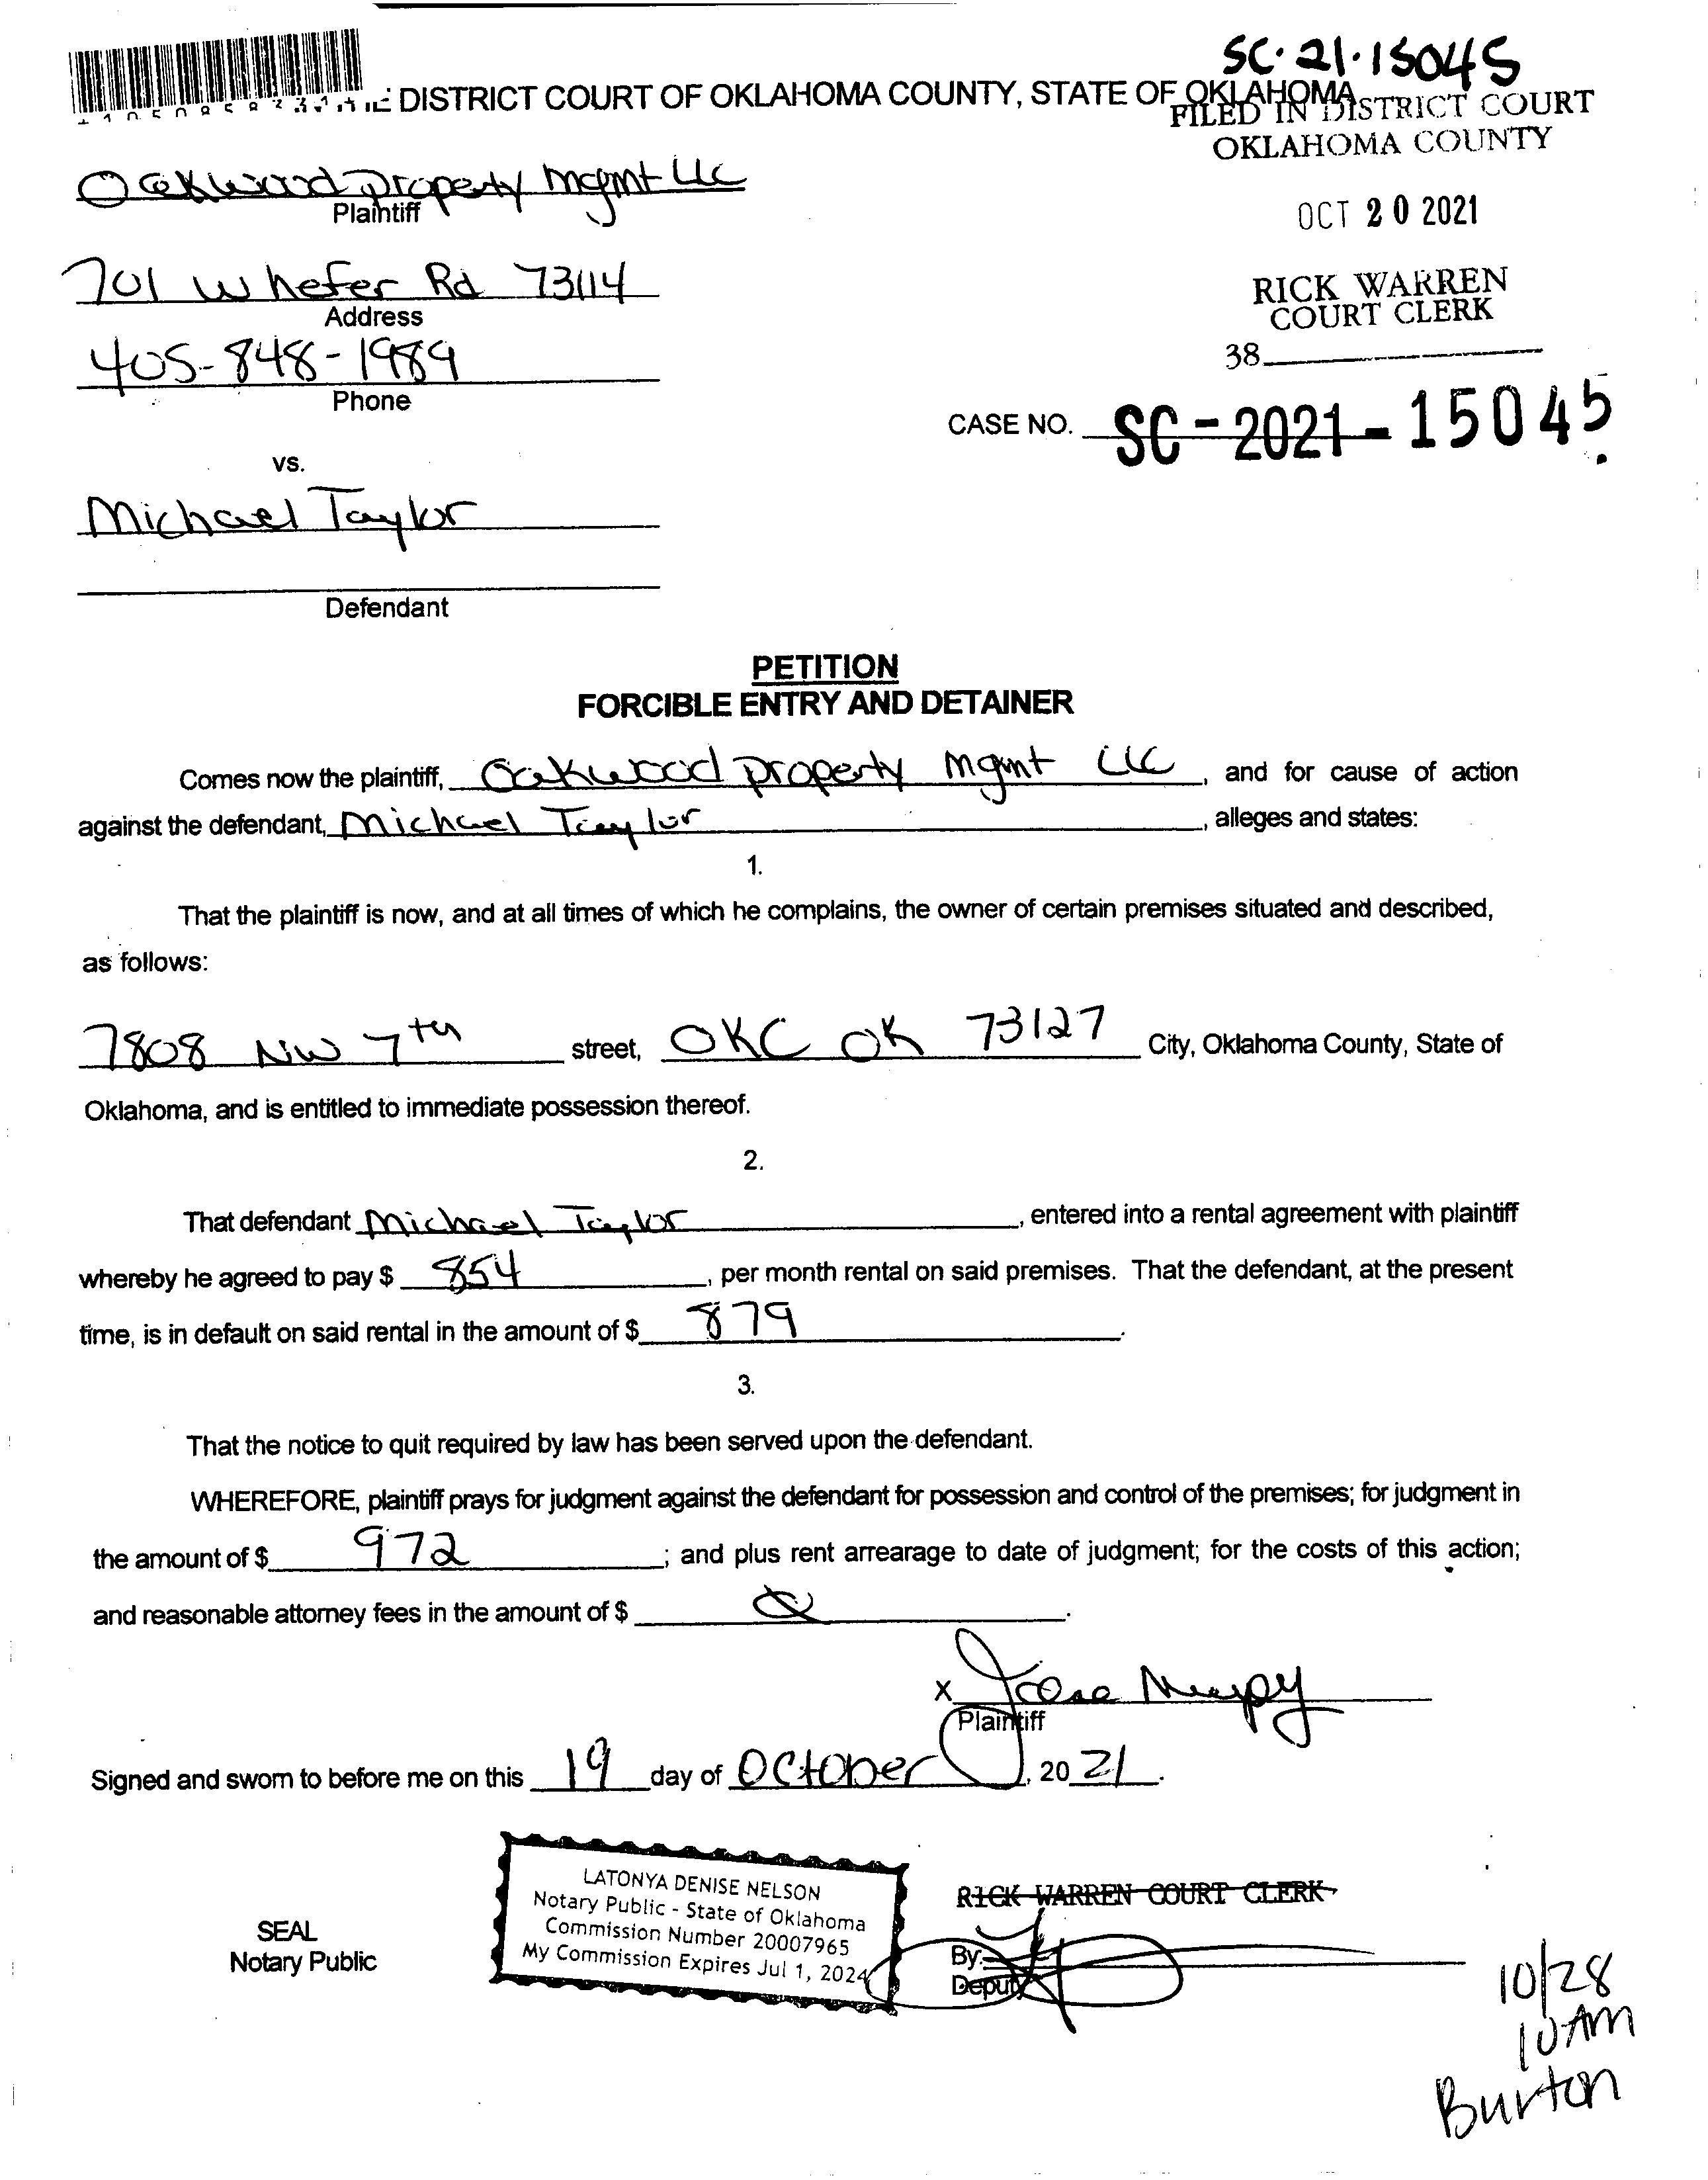 SC-21-15045
DISTRICT COURT OF OKLAHOMA COUNTY, STATE OF OKLAHOMA
FILED IN DISTRICT COURT
OKLAHOMA COUNTY
Oakwood Property Mgmt LLC
Plaintiff
OCT 20 2021
701 W hefer Rd 73114
Address
RICK WARREN
COURT CLERK
405-848-1989
Phone
38
CASE NO. SC-2021-15045
vs.
Michael Taylor
Defendant
PETITION
FORCIBLE ENTRY AND DETAINER
Comes now the plaintiff, Oakwood Property Mgmt LLC, and for cause of action
against the defendant, Michael Taylor, alleges and states:
1.
That the plaintiff is now, and at all times of which he complains, the owner of certain premises situated and described,
as follows:
7808 NW 7th street, OKC OK 73127 City, Oklahoma County, State of
Oklahoma, and is entitled to immediate possession thereof.
2.
That defendant Michael Taylor, entered into a rental agreement with plaintiff
whereby he agreed to pay $ 854, per month rental on said premises. That the defendant, at the present
time, is in default on said rental in the amount of $ 879.
3.
That the notice to quit required by law has been served upon the defendant.
WHEREFORE, plaintiff prays for judgment against the defendant for possession and control of the premises; for judgment in
the amount of $ 972; and plus rent arrearage to date of judgment; for the costs of this action;
and reasonable attorney fees in the amount of $
X
Plaintiff
Signed and sworn to before me on this 19 day of October, 2021.
LATONYA DENISE NELSON
Notary Public - State of Oklahoma
Commission Number 20007965
My Commission Expires Jul 1, 2024
RICK WARREN COURT CLERK
SEAL
Notary Public
By:
Deputy
10/28
10 AM
Burton